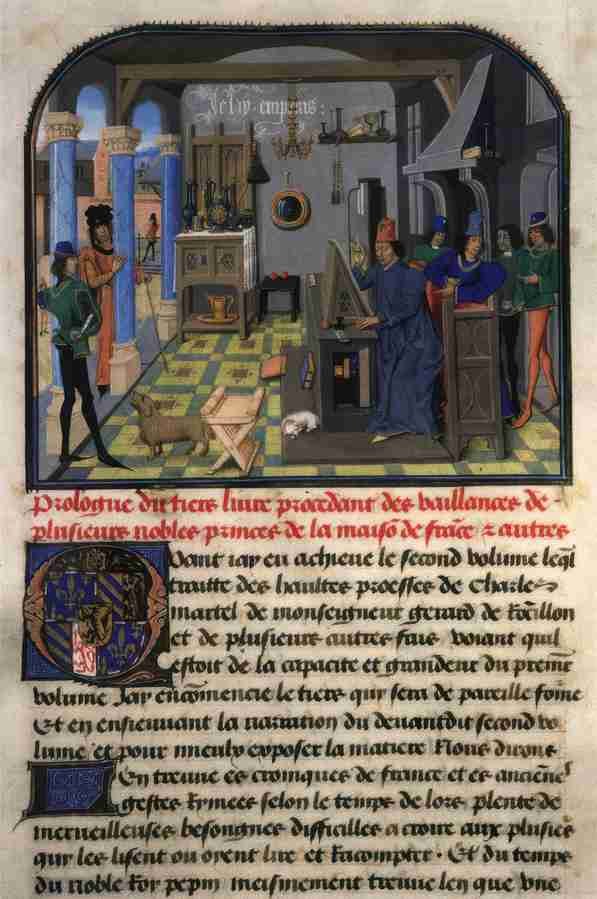 Je lay empris :
Prologue du tiers livre procedant des vaillances de
plusieurs nobles princes de la maisō de frāce & autres
Quant iay eu achieue le second volume leq̄l
traitte des haultes proesses de Charles
martel de monseigneur gerard de Rossillon
et de plusieurs autres fais voiant quil
estoit de la capacite et grandeur du premier
volume Jay encōmencie le tiers qui sera de pareille forme
Et en ensieuuant la narration du deuantdit second vo
lume et pour mieulx exposer la matiere Nous dirons
En treuue es croniques de france et es anciēnes
gestes Rymees selon le temps de lors plente de
merueilleuses besongnes difficilles a croire aux plusieurs
qui les lisent ou oyent lire et Racompter . Et du temps
du noble Roy pepin meismement treuue len que vne